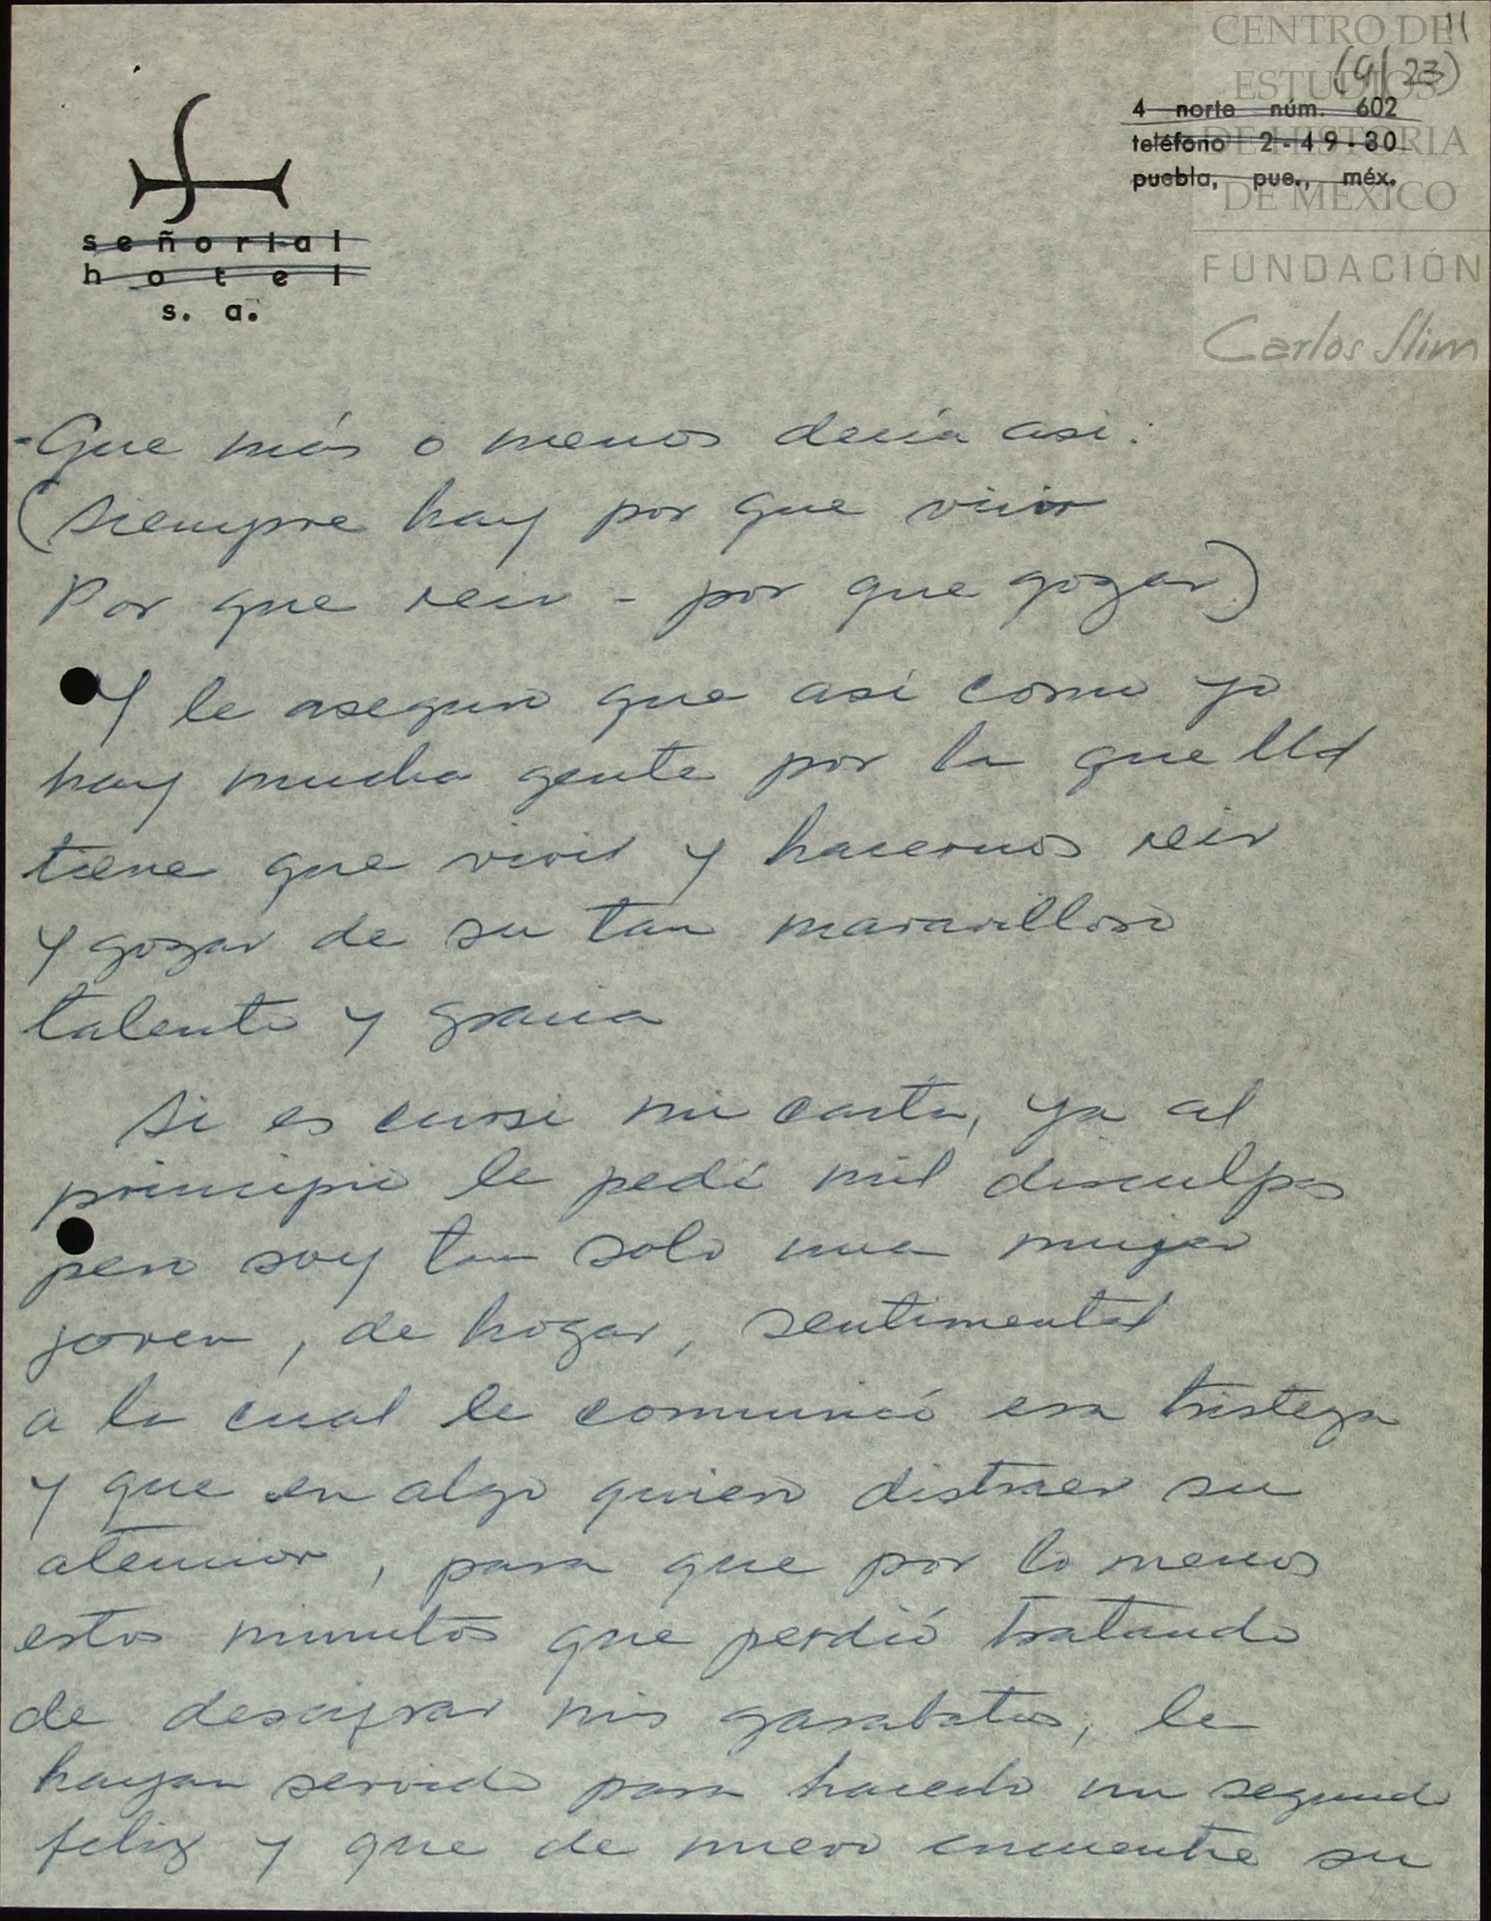 CENTRO DE
ESTUDIOS
DE HISTORIA
DE MÉXICO
FUNDACIÓN
Carlos Slim
11
(9/23)
4 norte núm. 602
teléfono 2-49-30
puebla, pue., méx.
señorial
hotel
s. a.
-Que más o menos decía asi:
(Siempre hay por que vivir
Por que reir - por que gozar)
Y le aseguro que asi como yo
hay mucha gente por la que Ud
tiene que vivir y hacernos reir
y gozar de su tan maravilloso
talento y gracia
Si es cursi mi carta, ya al
principio le pedí mil disculpas
pero soy tan solo una mujer
joven, de hogar, sentimental
a la cual le comunicó esa tristeza
y que en algo quiero distraer su
atencion, para que por lo menos
estos minutos que perdió tratando
de descifrar mis garabatos, le
hayan servido para hacerlo un segundo
feliz y que de nuevo encuentre su